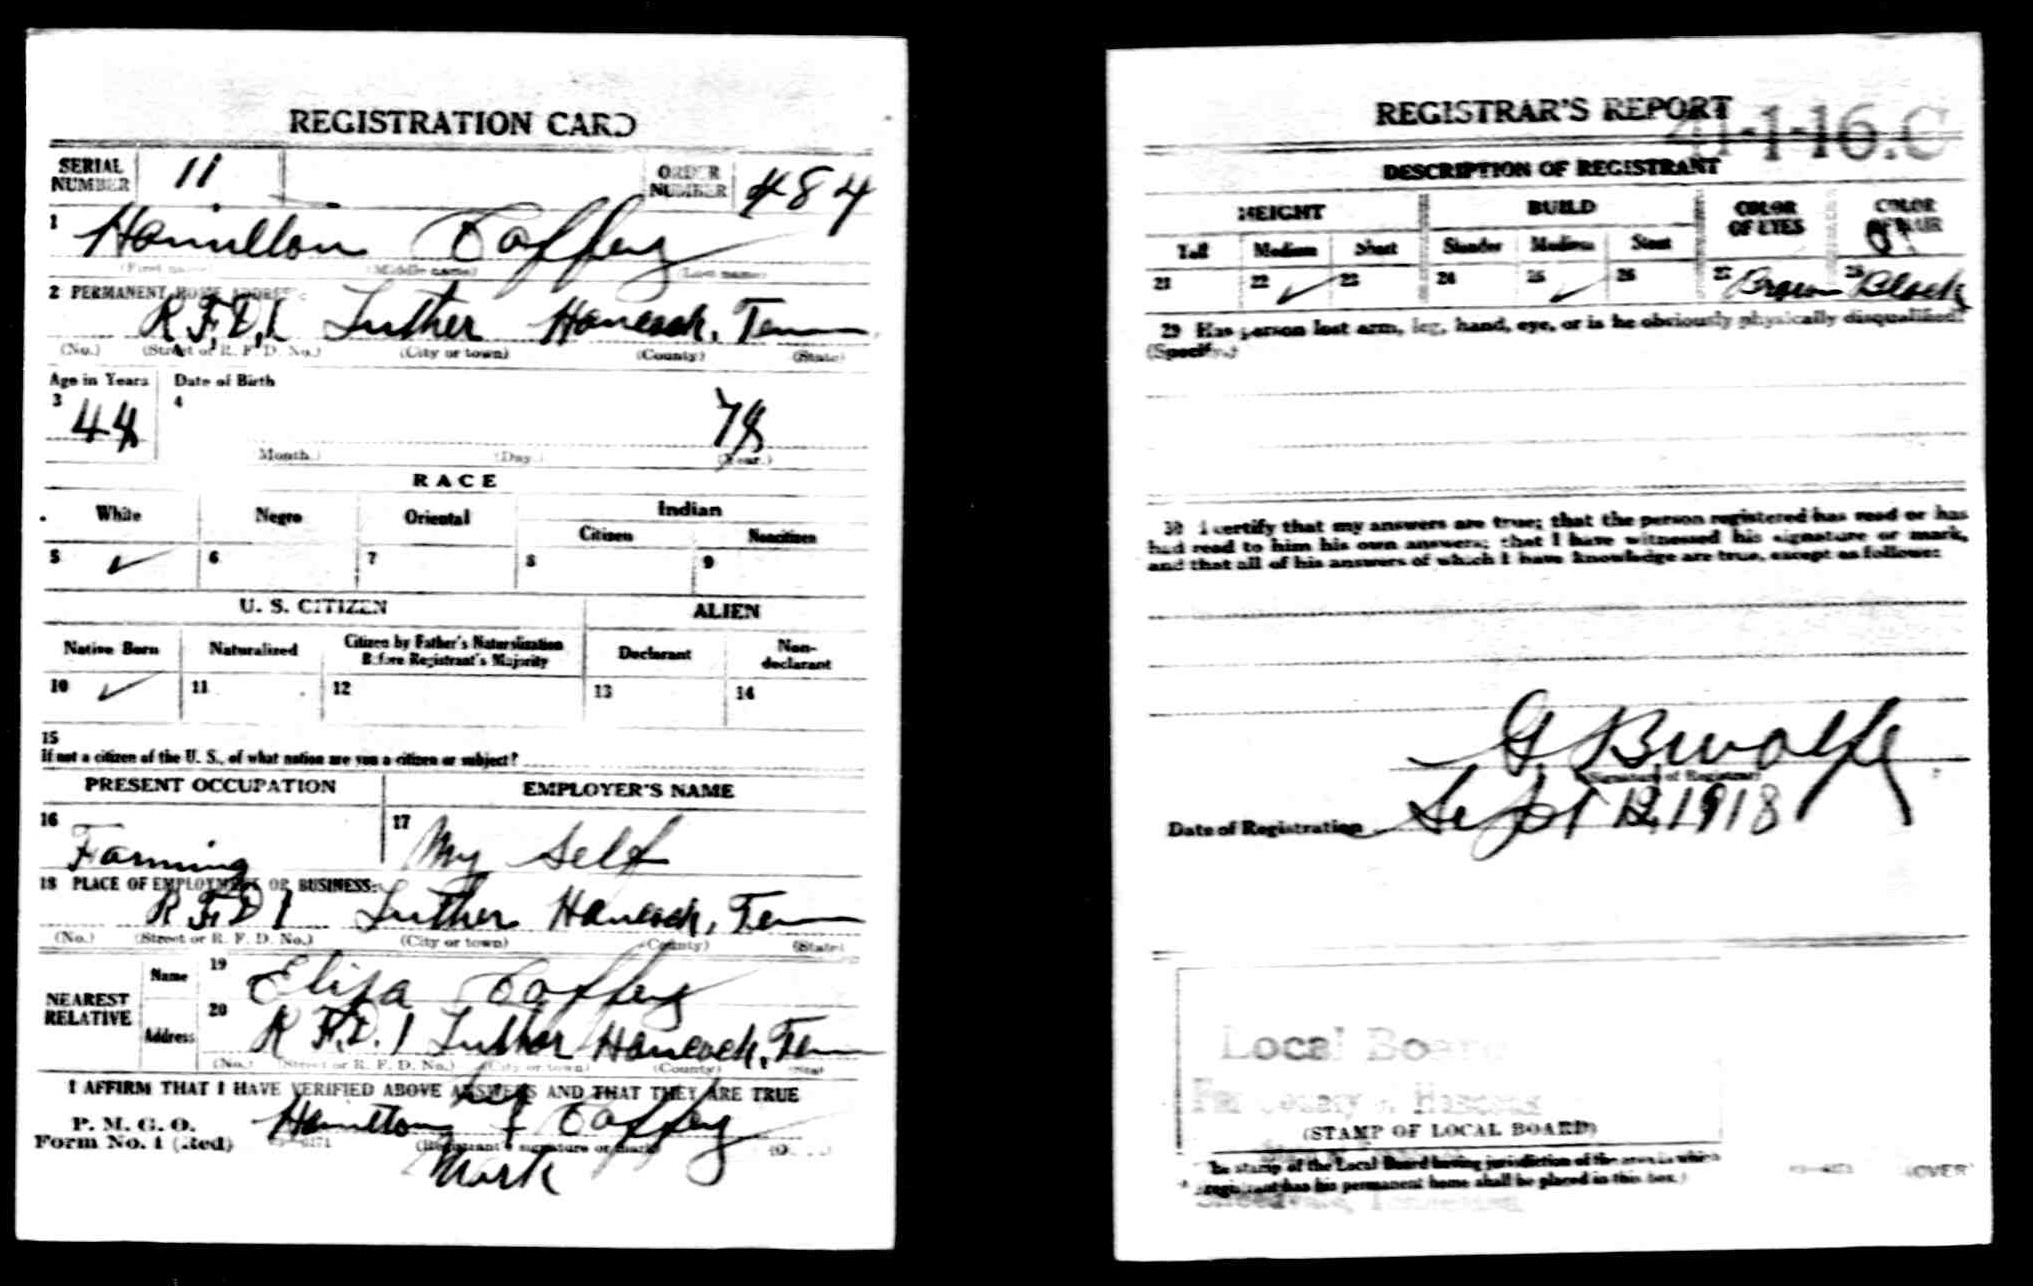 REGISTRATION CARD
SERIAL NUMBER 11
ORDER NUMBER 484
1 Hamilton Caffey
(First name) (Middle name) (Last name)
2 PERMANENT HOME ADDRESS:
R.F.D.1 Luther Hancock, Tenn
(No.) (Street or R. F. D. No.) (City or town) (County) (State)
Age in Years Date of Birth
3 44 4 78
(Month.) (Day.) (Year.)
RACE
White Negro Oriental Indian
Citizen Noncitizen
5 ✓ 6 7 8 9
U. S. CITIZEN ALIEN
Native Born Naturalized Citizen by Father's Naturalization Before Registrant's Majority Declarant Non-declarant
10 ✓ 11 12 13 14
15
If not a citizen of the U. S., of what nation are you a citizen or subject?
PRESENT OCCUPATION EMPLOYER'S NAME
16 Farming 17 My Self
18 PLACE OF EMPLOYMENT OR BUSINESS:
R.F.D 1 Luther Hancock, Tenn
(No.) (Street or R. F. D. No.) (City or town) (County) (State)
NEAREST RELATIVE
Name 19 Eliza Caffey
Address 20 R F.D. 1 Luther Hancock, Tenn
(No.) (Street or R. F. D. No.) (City or town) (County) (State)
I AFFIRM THAT I HAVE VERIFIED ABOVE ANSWERS AND THAT THEY ARE TRUE
P. M. G. O.
Form No. 1 (Red)
his
Hamilton Caffey
(Registrant's signature or mark)
Mark
REGISTRAR'S REPORT
41-1-16.C
DESCRIPTION OF REGISTRANT
HEIGHT BUILD COLOR OF EYES COLOR OF HAIR
Tall Medium Short Slender Medium Stout
21 22 ✓ 23 24 25 ✓ 26 27 Brown 28 Black
29 Has person lost arm, leg, hand, eye, or is he obviously physically disqualified?
(Specify.)
30 I certify that my answers are true; that the person registered has read or has
had read to him his own answers; that I have witnessed his signature or mark,
and that all of his answers of which I have knowledge are true, except as follows:
G. B. Wolfe
(Signature of Registrar)
Date of Registration Sept 12, 1918
Local Board
For County of Hancock
(STAMP OF LOCAL BOARD)
(The stamp of the Local Board having jurisdiction of the area in which
registrant has his permanent home shall be placed in this box.)
Sneedville, Tennessee
(OVER)